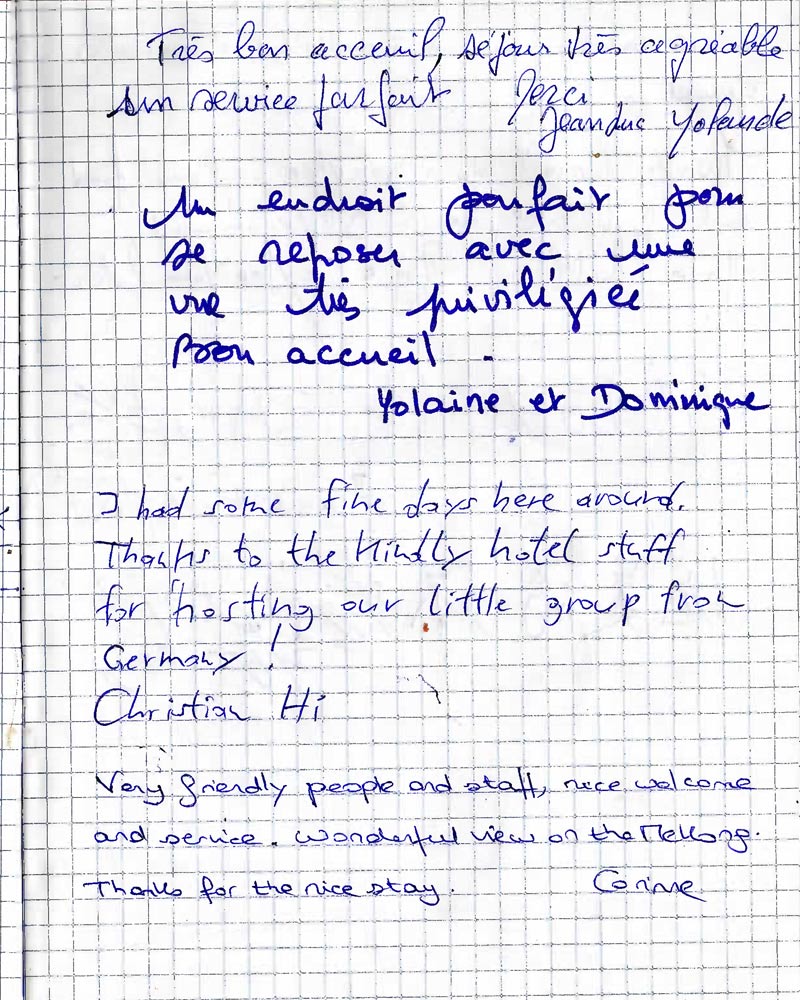 Très bon acceuil, séjour très agréable
un service parfait Merci
Jeanduc Yolande
Un endroit parfait pour
se reposer avec une
vue très priviligiée
Bon accueil .
Yolaine et Dominique
I had some fine days here around.
Thanks to the kindly hotel staff
for hosting our little group from
Germany !
Christian Hi
Very friendly people and staff, nice welcome
and service. Wonderful view on the Mekong.
Thanks for the nice stay. Corinne